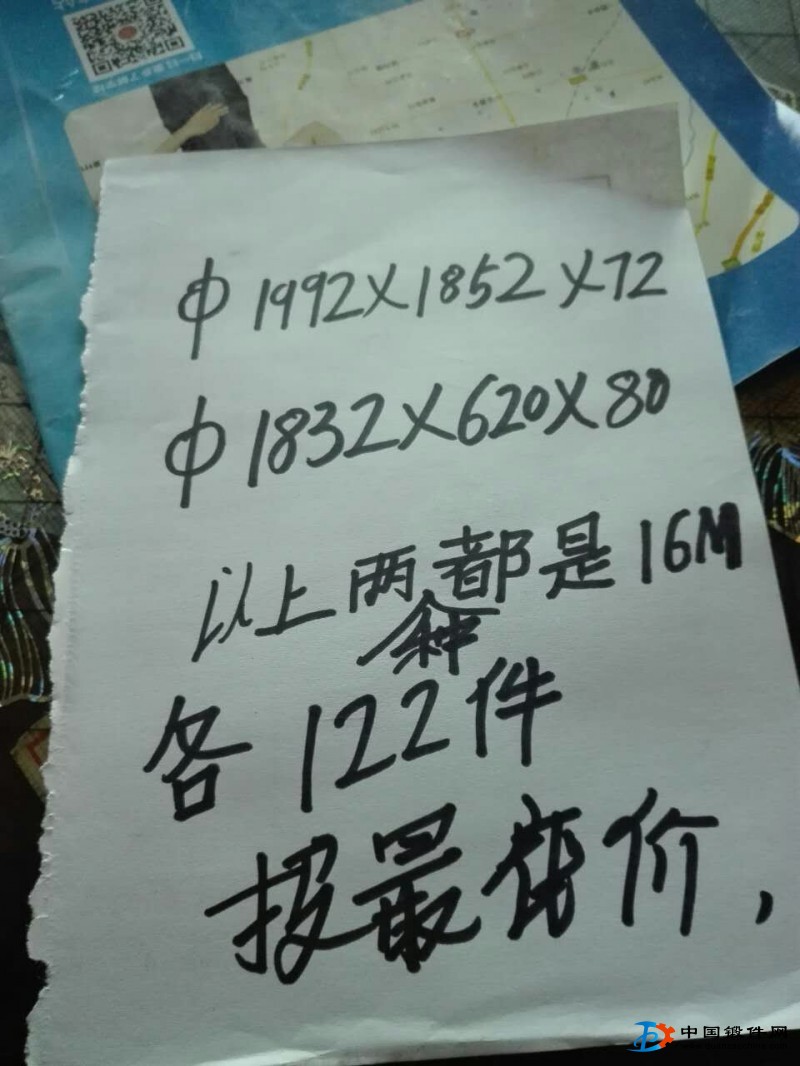 φ1992×1852×72
φ1832×620×80
以上两种都是16M
各122件
报最低价，
中国锻件网